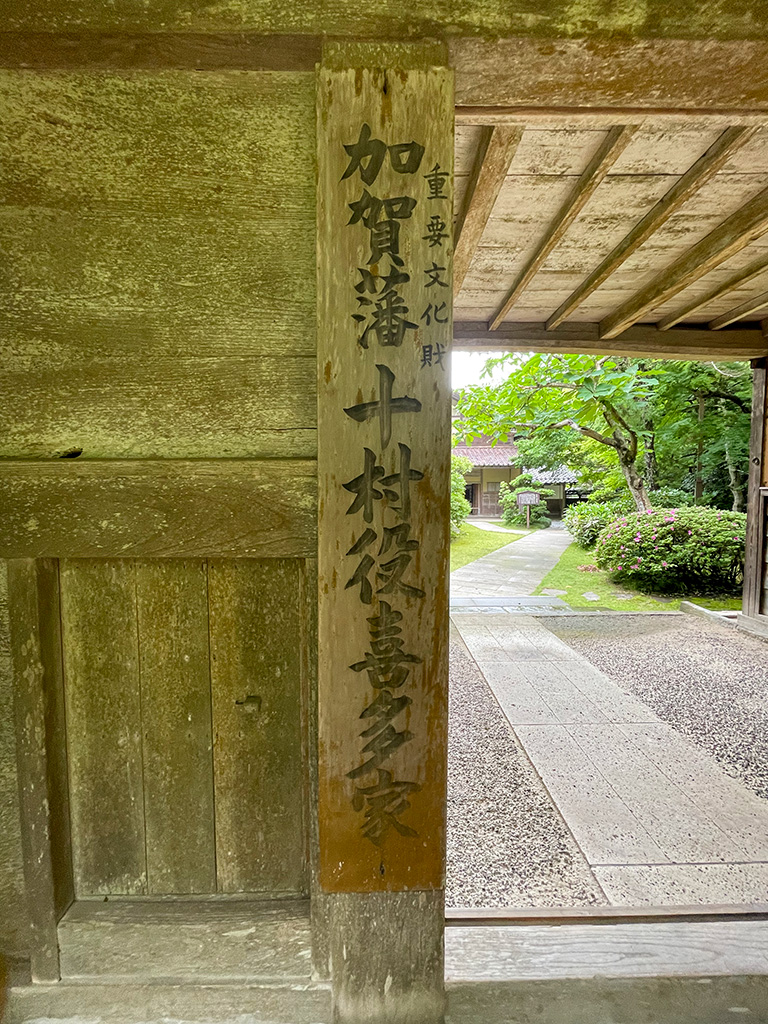 重要文化財
加賀藩十村役喜多家